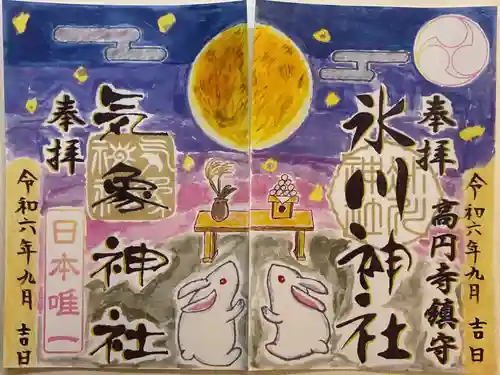 令和六年九月吉日
奉拝
高円寺鎮守
氷川神社
奉拝
気象神社
日本唯一
令和六年九月 吉日